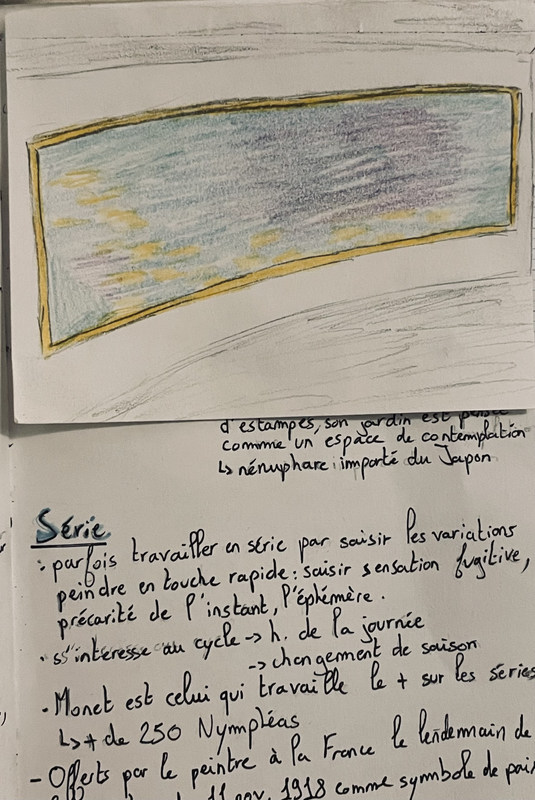 d'estampes, son jardin est pensé
comme un espace de contemplation
↳ nénuphare : importé du Japon
Série
: parfois travailler en série par saisir les variations
peindre en touche rapide : saisir sensation fugitive,
précarité de l'instant, l'éphémère.
• s'intéresse au cycle → h. de la journée
→ changement de saison
• Monet est celui qui travaille le + sur les séries
↳ + de 250 Nympléas
- Offerts par le peintre à la France le lendemain de
11 nov. 1918 comme symbole de paix